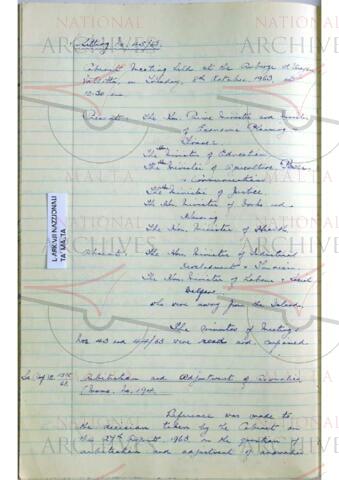 Sitting No. 45/63.
Cabinet Meeting held at the Auberge d'Aragon
Valletta, on Tuesday, 8th October, 1963 at
10.30 am
Present: The Hon. Prime Minister and Minister
of Economic Planning
+ Finance
The Hon. Minister of Education
The Hon. Minister of Agriculture, Power
+ Communications
The Hon. Minister of Justice
The Hon. Minister of Works and
Housing
The Hon. Minister of Health
Absent: The Hon. Minister of Industrial
Development + Tourism
The Hon. Minister of Labour + Social
Welfare
who were away from the Island.
The minutes of Meetings
Nos 43 and 44/63 were read and confirmed
and Adjustment of
Reference was made to
the decision taken by the Cabinet on
the 27th August 1963 on the question of
and adjustment of
L-ARKIVJI NAZZJONALI
TA' MALTA
NATIONAL
ARCHIVES